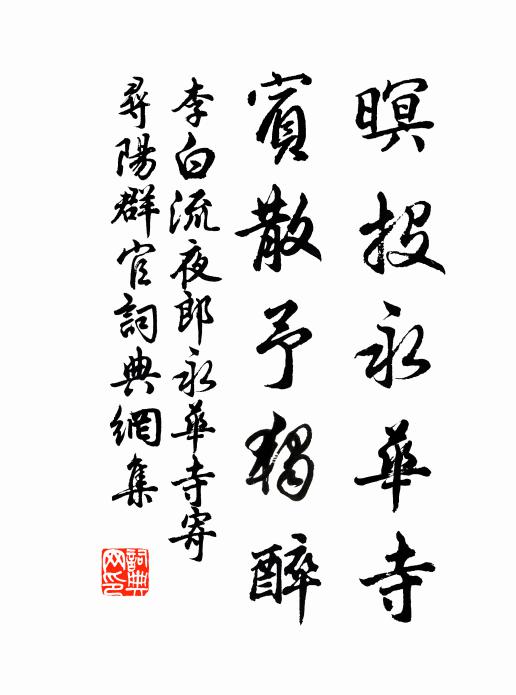 暝投永華寺
賓散予獨醉
李白流夜郎永華寺寄
尋陽群官詞典網集
詞典
网印